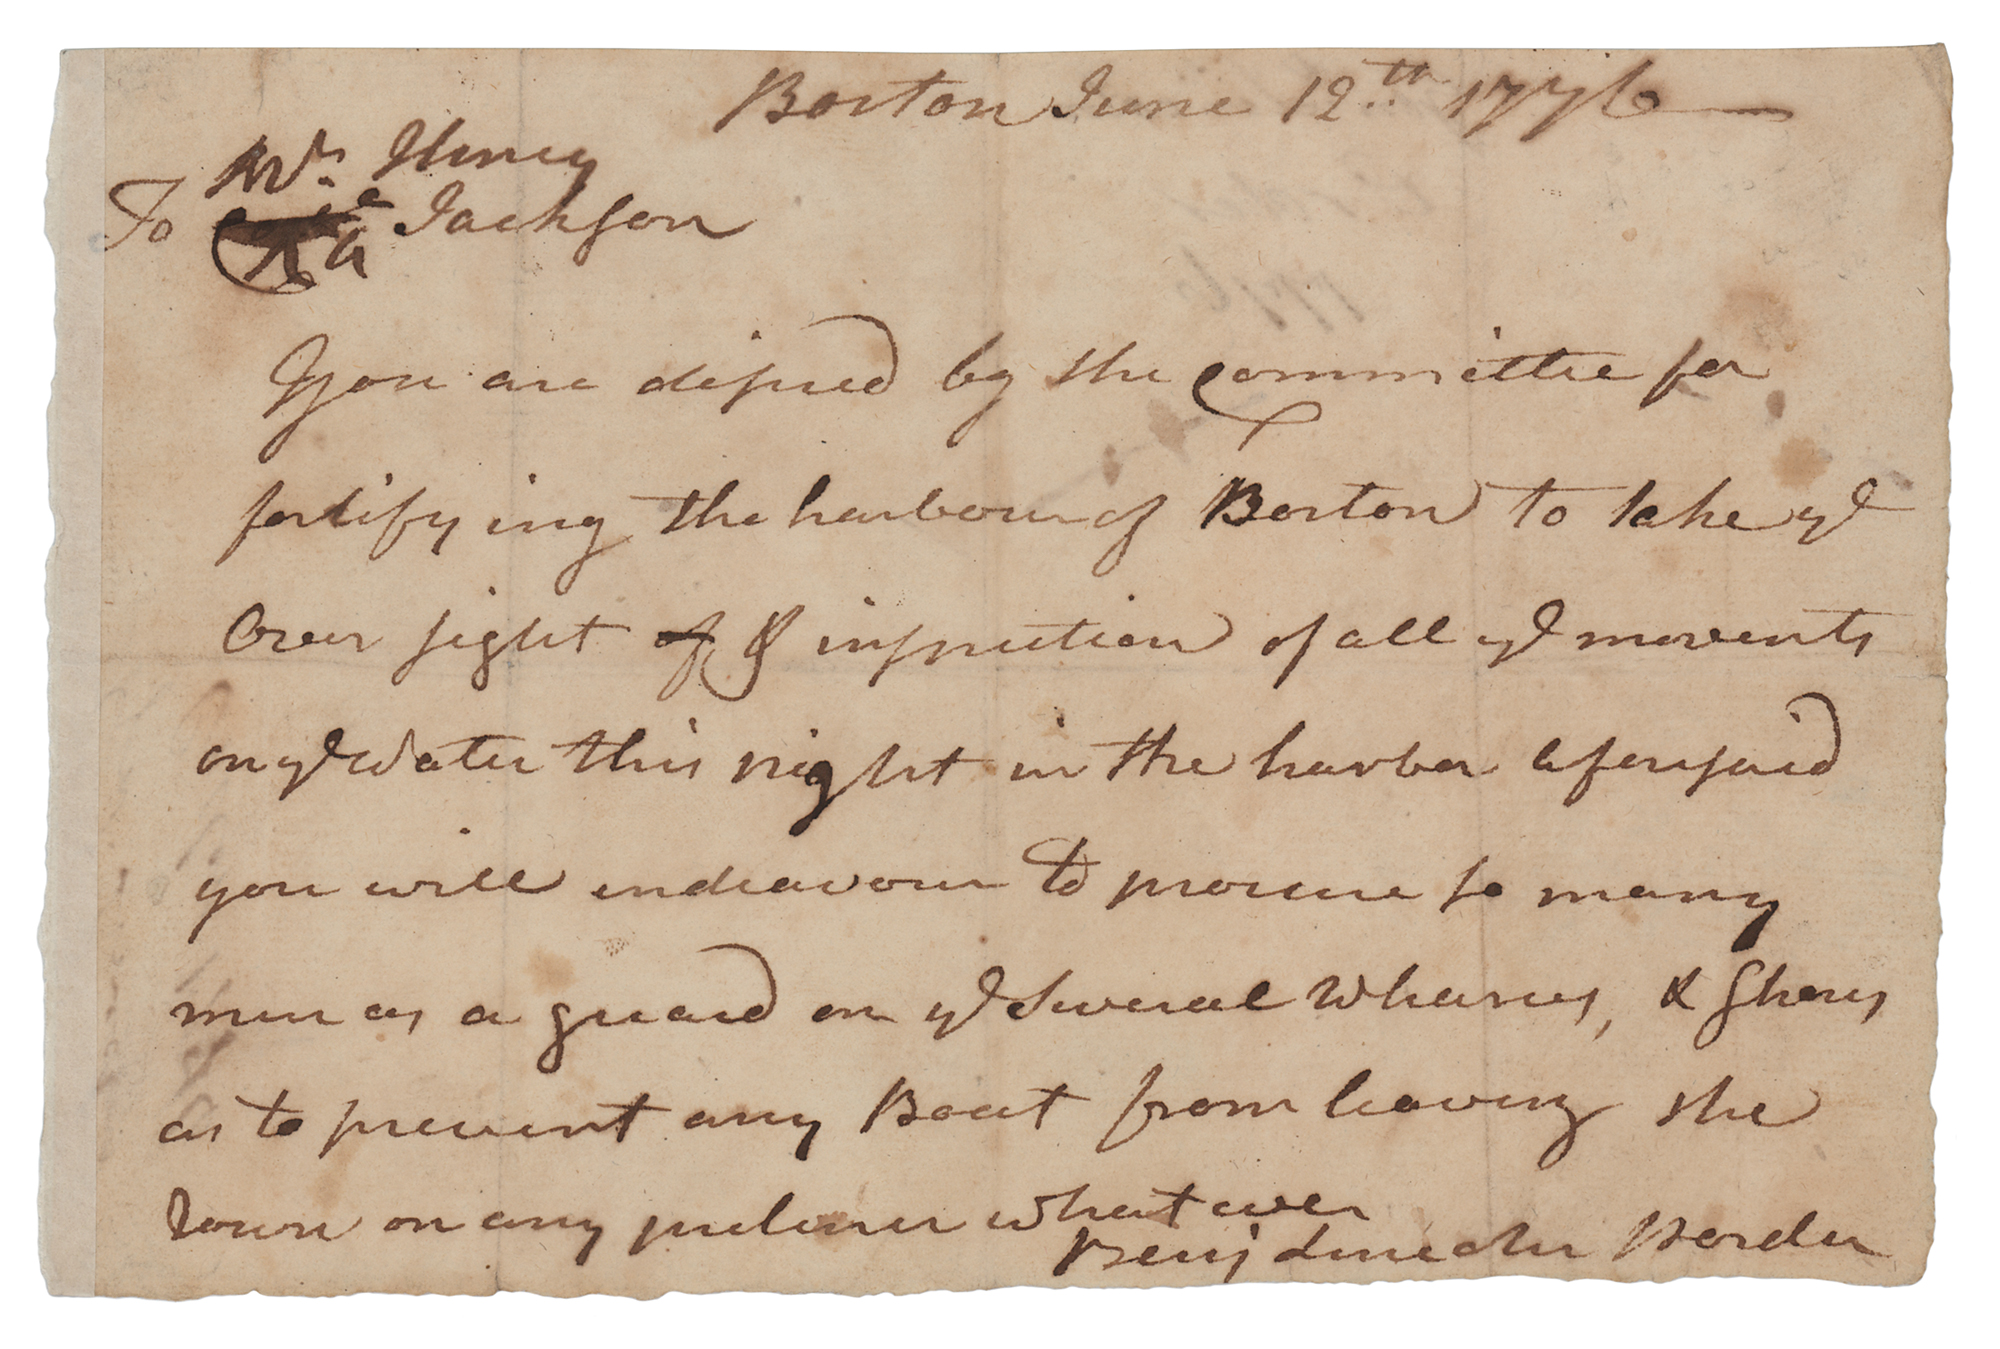 Boston June 12th 1776
Mr. Henry
To Jackson
You are desired by the Committee for
fortifying the harbour of Boston to take ye
Over sight of & inspection of all ye movents
on ye Water this night in the harbor aforesaid
you will endeavour to procure so many
men as a guard on ye Several Wharves, & Shores
as to prevent any Boat from leaving the
Town on any pretence what ever
Benj Lincoln Order